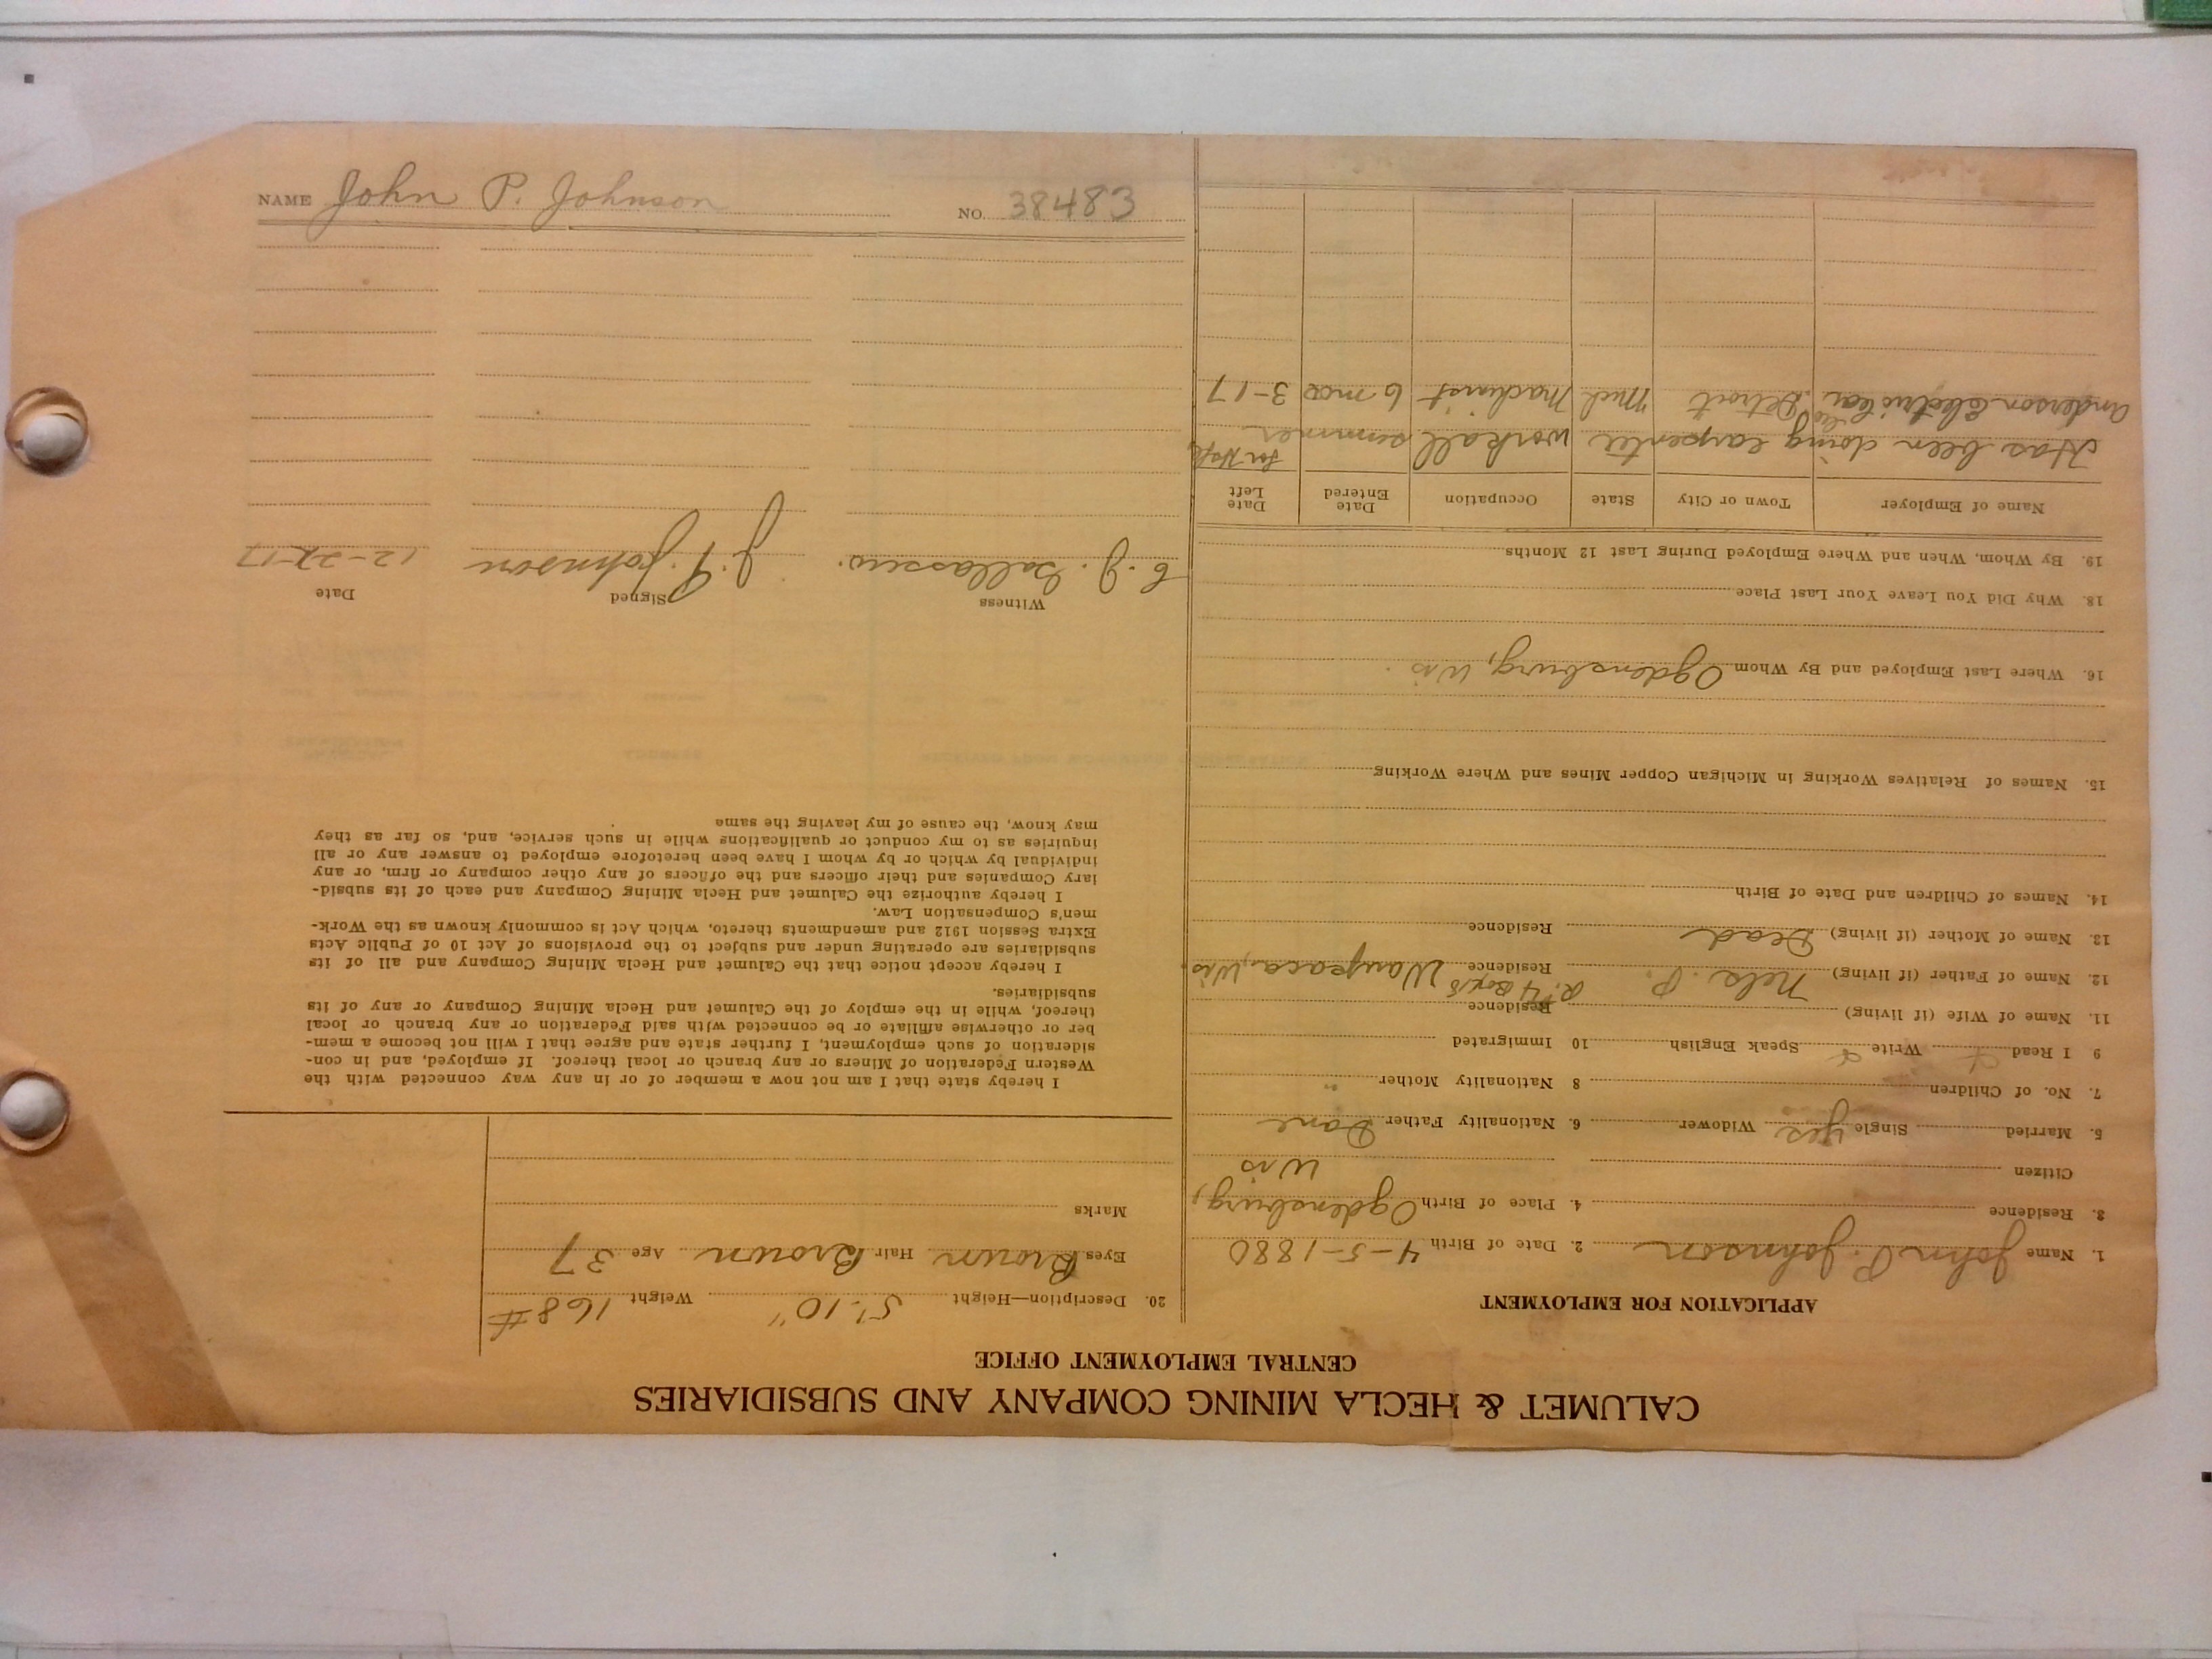 CALUMET & HECLA MINING COMPANY AND SUBSIDIARIES
CENTRAL EMPLOYMENT OFFICE
APPLICATION FOR EMPLOYMENT
1. Name John P. Johnson 2. Date of Birth 4-5-1880
3. Residence 4. Place of Birth Ogdensburg,
Citizen Wis
5. Married Single yes Widower 6. Nationality Father Dane
7. No. of Children 8 Nationality Mother "
9 I Read Write Speak English 10 Immigrated
11. Name of Wife (if living) Residence
R. #4 Box 8
12. Name of Father (if living) Nels. P. Residence Waupaca, Wis.
13. Name of Mother (if living) Dead Residence
14. Names of Children and Date of Birth
15. Names of Relatives Working in Michigan Copper Mines and Where Working
16. Where Last Employed and By Whom Ogdensburg, Wis.
18. Why Did You Leave Your Last Place
19. By Whom, When and Where Employed During Last 12 Months
Name of Employer Town or City State Occupation Date Entered Date Left
Has been doing carpenter work all summer
Anderson Electric Car Detroit Mich Machinist 6 mos 3-17
20. Description—Height 5'-10" Weight 168#
Eyes Brown Hair Brown Age 37
Marks
I hereby state that I am not now a member of or in any way connected with the
Western Federation of Miners or any branch or local thereof. If employed, and in con-
sideration of such employment, I further state and agree that I will not become a mem-
ber or otherwise affiliate or be connected with said Federation or any branch or local
thereof, while in the employ of the Calumet and Hecla Mining Company or any of its
subsidiaries.
I hereby accept notice that the Calumet and Hecla Mining Company and all of its
subsidiaries are operating under and subject to the provisions of Act 10 of Public Acts
Extra Session 1912 and amendments thereto, which Act is commonly known as the Work-
men's Compensation Law.
I hereby authorize the Calumet and Hecla Mining Company and each of its subsid-
iary Companies and their officers and the officers of any other company or firm, or any
individual by which or by whom I have been heretofore employed to answer any or all
inquiries as to my conduct or qualifications while in such service, and, so far as they
may know, the cause of my leaving the same
Witness Signed Date
J. P. Johnson 12-22-17
NAME John P. Johnson NO. 38483